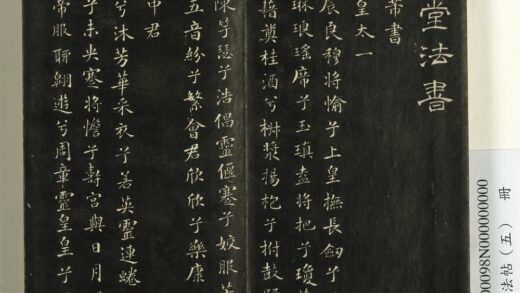 堂法書
芾書
皇太一
辰良穆將愉兮上皇撫長劍兮
琳琅瑤席兮玉瑱盍將把兮瓊
藉奠桂酒兮椒漿揚枹兮拊鼓
陳竽瑟兮浩倡靈偃蹇兮姣服
五音紛兮繁會君欣欣兮樂康
中君
兮沐芳華采衣兮若英靈連蜷
兮未央蹇將憺兮壽宮與日月
帝服聊翱遊兮周章靈皇皇兮
00098N000000000
法帖（五） 冊